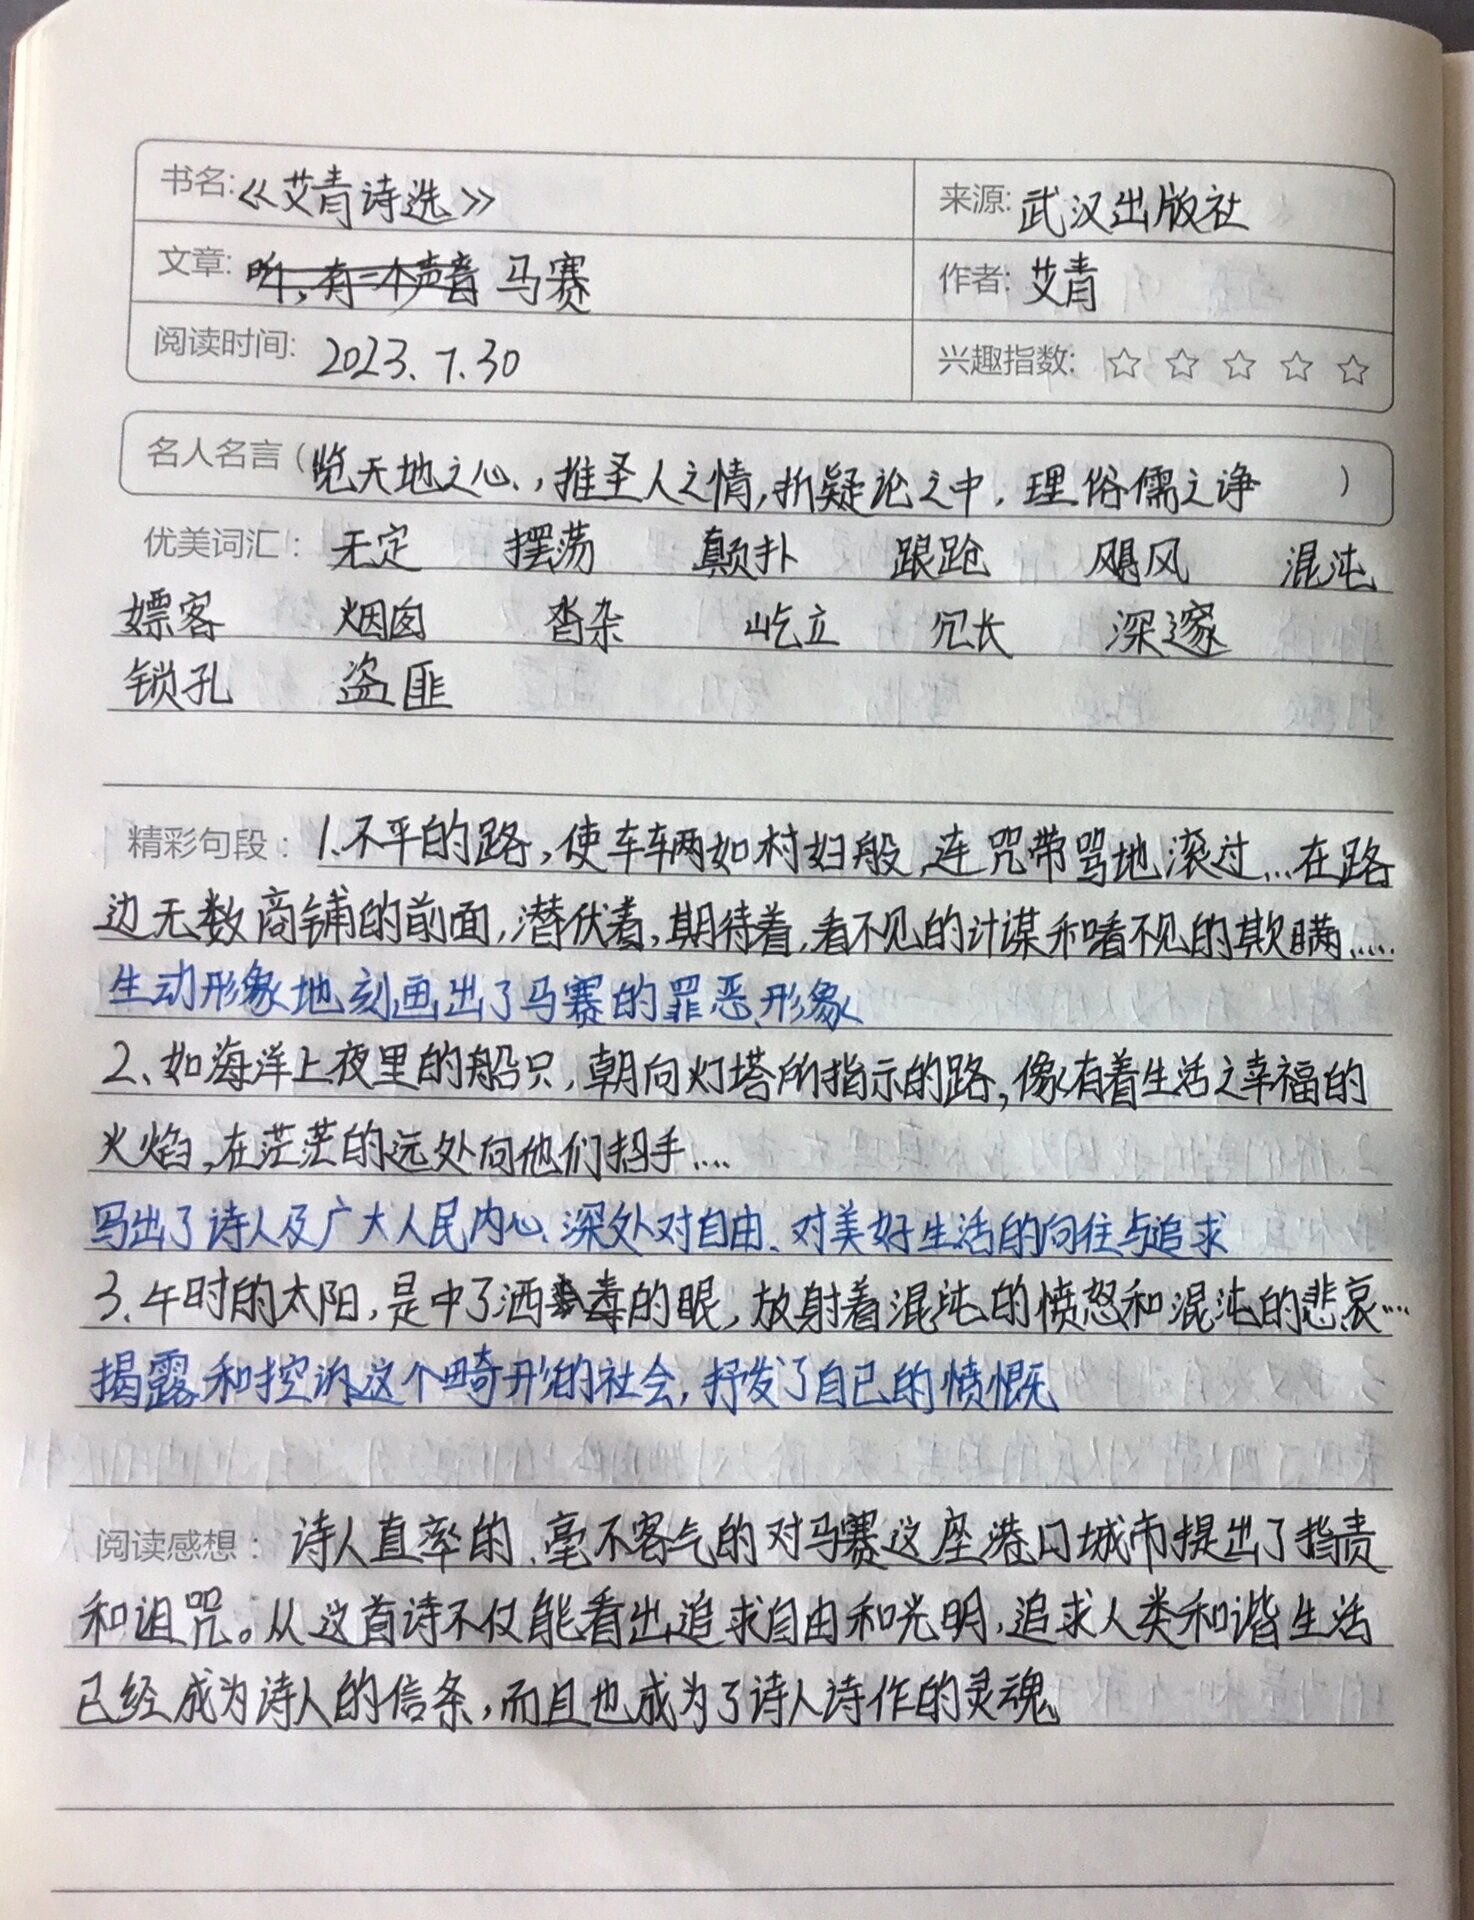 书名:《艾青诗选》 来源:武汉出版社
文章:听,有一个声音 马赛 作者:艾青
阅读时间: 2023.7.30 兴趣指数:☆ ☆ ☆ ☆ ☆
名人名言(览天地之心,推圣人之情,折疑论之中,理俗儒之诤)
优美词汇: 无定 摆荡 颠扑 踉跄 飓风 混沌
嫖客 烟囱 沓杂 屹立 冗长 深邃
锁孔 盗匪
精彩句段:1.不平的路,使车辆如村妇般,连咒带骂地滚过...在路
边无数商铺的前面,潜伏着,期待着,看不见的计谋和看不见的欺瞒.....
生动形象地刻画出了马赛的罪恶形象
2、如海洋上夜里的船只,朝向灯塔所指示的路,像有着生活之幸福的
火焰,在茫茫的远处向他们招手....
写出了诗人及广大人民内心深处对自由、对美好生活的向往与追求
3.午时的太阳,是中了酒毒的眼,放射着混沌的愤怒和混沌的悲哀....
揭露和控诉这个畸形的社会,抒发了自己的愤慨
阅读感想: 诗人直率的、毫不客气的对马赛这座港口城市提出了指责
和诅咒。从这首诗不仅能看出追求自由和光明,追求人类和谐生活
已经成为诗人的信条,而且也成为了诗人诗作的灵魂